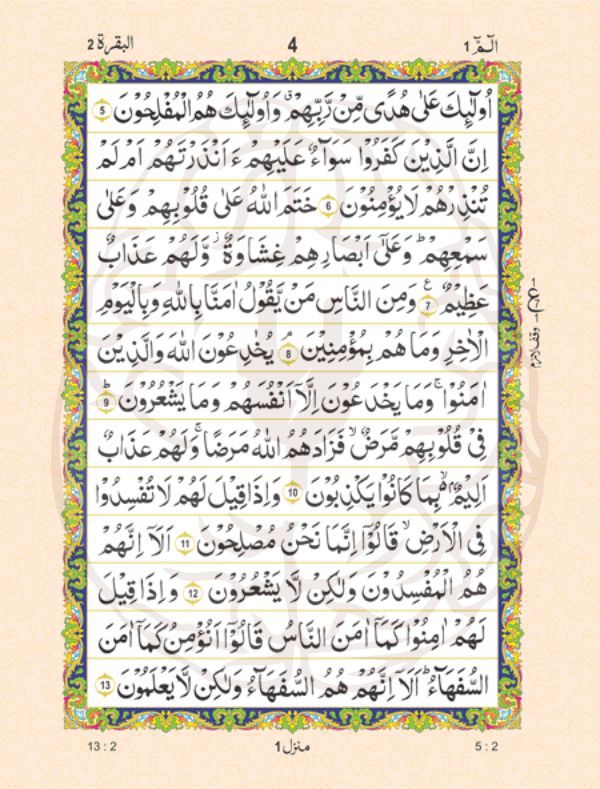 الٓمّٓ 1 4 البقرة 2
اُولٰٓئِكَ عَلٰى هُدًى مِّنْ رَّبِّهِمْ ۗ وَاُولٰٓئِكَ هُمُ الْمُفْلِحُوْنَ 5
اِنَّ الَّذِيْنَ كَفَرُوْا سَوَآءٌ عَلَيْهِمْ ءَاَنْذَرْتَهُمْ اَمْ لَمْ
تُنْذِرْهُمْ لَا يُؤْمِنُوْنَ 6 خَتَمَ اللّٰهُ عَلٰى قُلُوْبِهِمْ وَعَلٰى
سَمْعِهِمْ ؕ وَعَلٰٓى اَبْصَارِهِمْ غِشَاوَةٌ ؗ وَّلَهُمْ عَذَابٌ
عَظِيْمٌ 7 وَمِنَ النَّاسِ مَنْ يَّقُوْلُ اٰمَنَّا بِاللّٰهِ وَبِالْيَوْمِ
الْاٰخِرِ وَمَا هُمْ بِمُؤْمِنِيْنَ 8 يُخٰدِعُوْنَ اللّٰهَ وَالَّذِيْنَ
اٰمَنُوْا ۚ وَمَا يَخْدَعُوْنَ اِلَّآ اَنْفُسَهُمْ وَمَا يَشْعُرُوْنَ 9
فِيْ قُلُوْبِهِمْ مَّرَضٌ ۙ فَزَادَهُمُ اللّٰهُ مَرَضًا ۚ وَلَهُمْ عَذَابٌ
اَلِيْمٌۢ ۙ بِمَا كَانُوْا يَكْذِبُوْنَ 10 وَاِذَا قِيْلَ لَهُمْ لَا تُفْسِدُوْا
فِي الْاَرْضِ ۙ قَالُوْٓا اِنَّمَا نَحْنُ مُصْلِحُوْنَ 11 اَلَآ اِنَّهُمْ
هُمُ الْمُفْسِدُوْنَ وَلٰكِنْ لَّا يَشْعُرُوْنَ 12 وَاِذَا قِيْلَ
لَهُمْ اٰمِنُوْا كَمَآ اٰمَنَ النَّاسُ قَالُوْٓا اَنُؤْمِنُ كَمَآ اٰمَنَ
السُّفَهَآءُ ؕ اَلَآ اِنَّهُمْ هُمُ السُّفَهَآءُ وَلٰكِنْ لَّا يَعْلَمُوْنَ 13
ع
وقف لازم
5 : 2 منزل 1 13 : 2